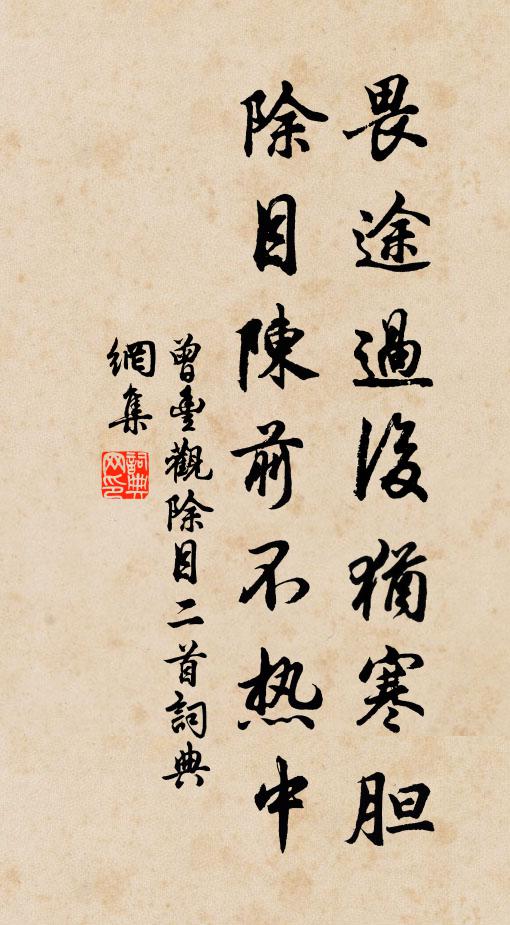 畏途過後猶寒胆
除目陳前不热中
曾豐觀除目二首詞典
網集
詞典網印